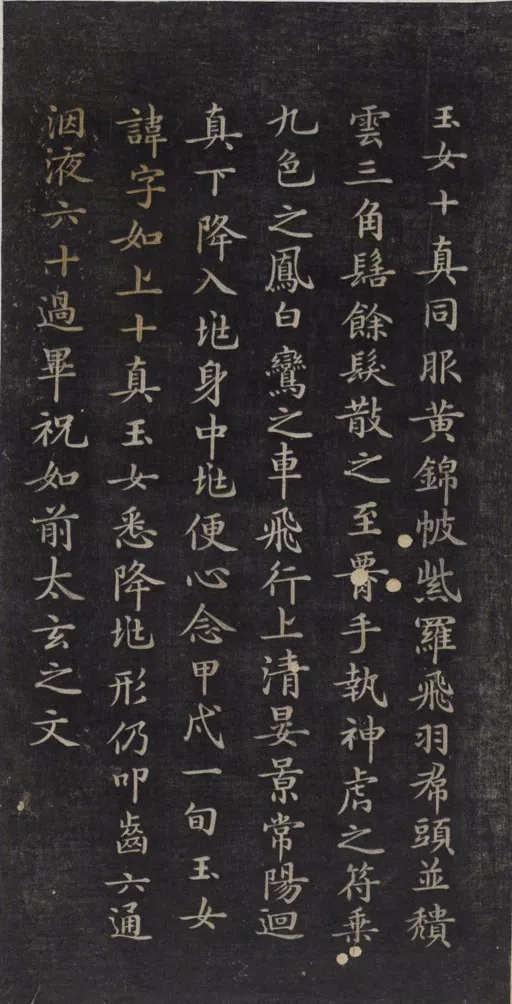 玉女十真同服黄錦帔紫羅飛羽帬頭並穨
雲三角髻餘髮散之至腰手執神虎之符乗
九色之鳳白鸞之車飛行上清晏景常陽迴
真下降入兆身中兆便心念甲戌一旬玉女
諱字如上十真玉女悉降兆形仍叩齒六通
咽液六十過畢祝如前太玄之文